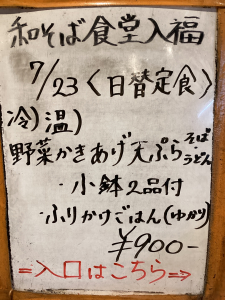 和そば食堂入福
7/23〈日替定食〉
冷)温)
野菜かきあげ天ぷらそばうどん
・小鉢2品付
・ふりかけごはん(ゆかり)
¥900-
⇒入口はこちら⇒